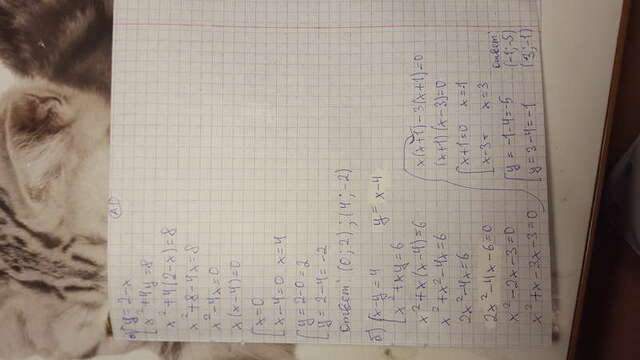 А1
а) { y = 2-x
x² + 4y = 8
x² + 4(2-x) = 8
x² + 8 - 4x = 8
x² - 4x = 0
x(x-4) = 0
[ x = 0
x - 4 = 0 x = 4
[ y = 2-0 = 2
y = 2-4 = -2
Ответ: (0; 2) ; (4; -2)
б) { x - y = 4 y = x - 4
x² + xy = 6
x² + x(x-4) = 6
x² + x² - 4x = 6
2x² - 4x = 6
2x² - 4x - 6 = 0
x² - 2x - 3 = 0
x² + x - 3x - 3 = 0
x(x+1) - 3(x+1) = 0
(x+1)(x-3) = 0
[ x+1 = 0 x = 1
x-3 = x = 3
[ y = -1-4 = -5
y = 3-4 = -1
Ответ
(-1; -5)
(3; -1)